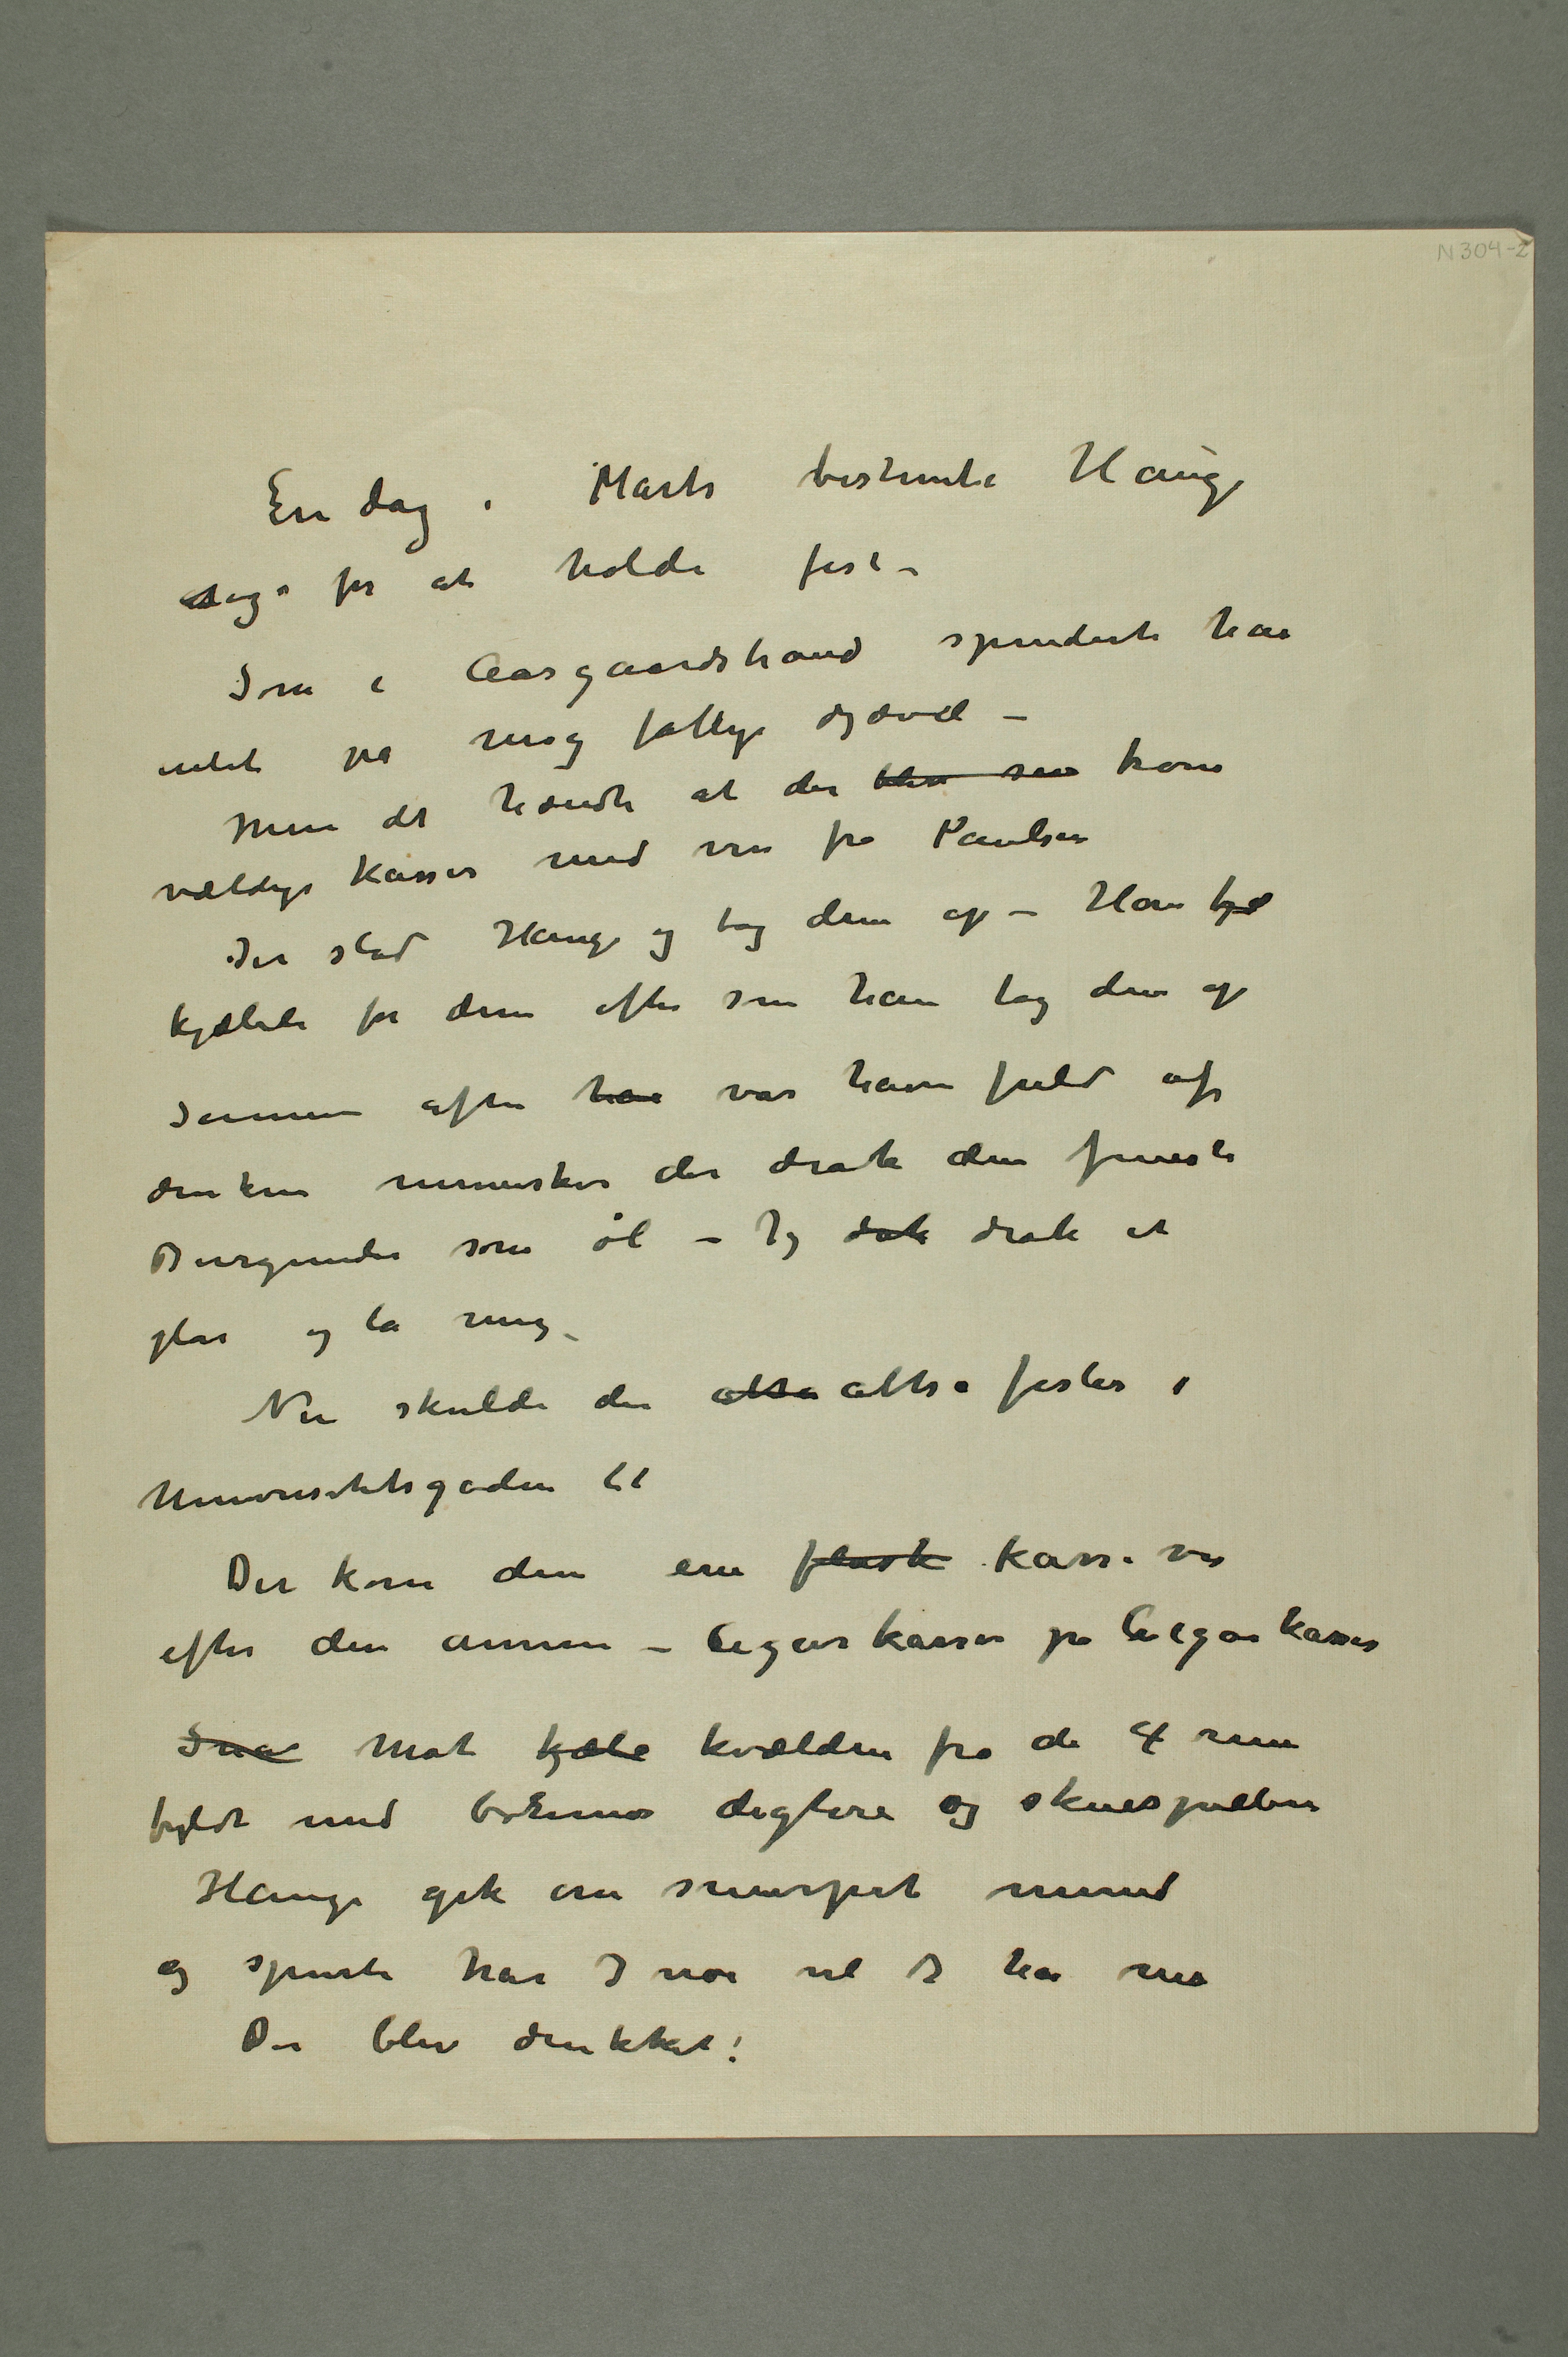 N 304-2
En dag i Marts bestemte Hauge
sig for at holde fest –
Som i Aasgaardstrand spenderte han
intet på mig fattige djævel –
Men det hændte at der blev sen kom
vældige kasser med vin fra Paulsen
Der stod Hauge og tog dem op – Han kjæ
kjælede for dem efter som han tog dem op
Sammen aften han var haven fuld af
drukne mennesker der drak den fineste
Burgunder som øl – Jeg dak drak et
glas og la mig –
Nu skulde der altså altså festes i
Universitetsgaden 61
Der kom den ene flask kasse vin
efter den annen – Cigarkasser på Cigarkasser
Sna Mot kjæle kvælden fra de 4 rum
fyldt med bohemer digtere og skuespillere
Hauge gik om snurpet mund
og spurte har I noe vil I ha mer
Der blev drukket!